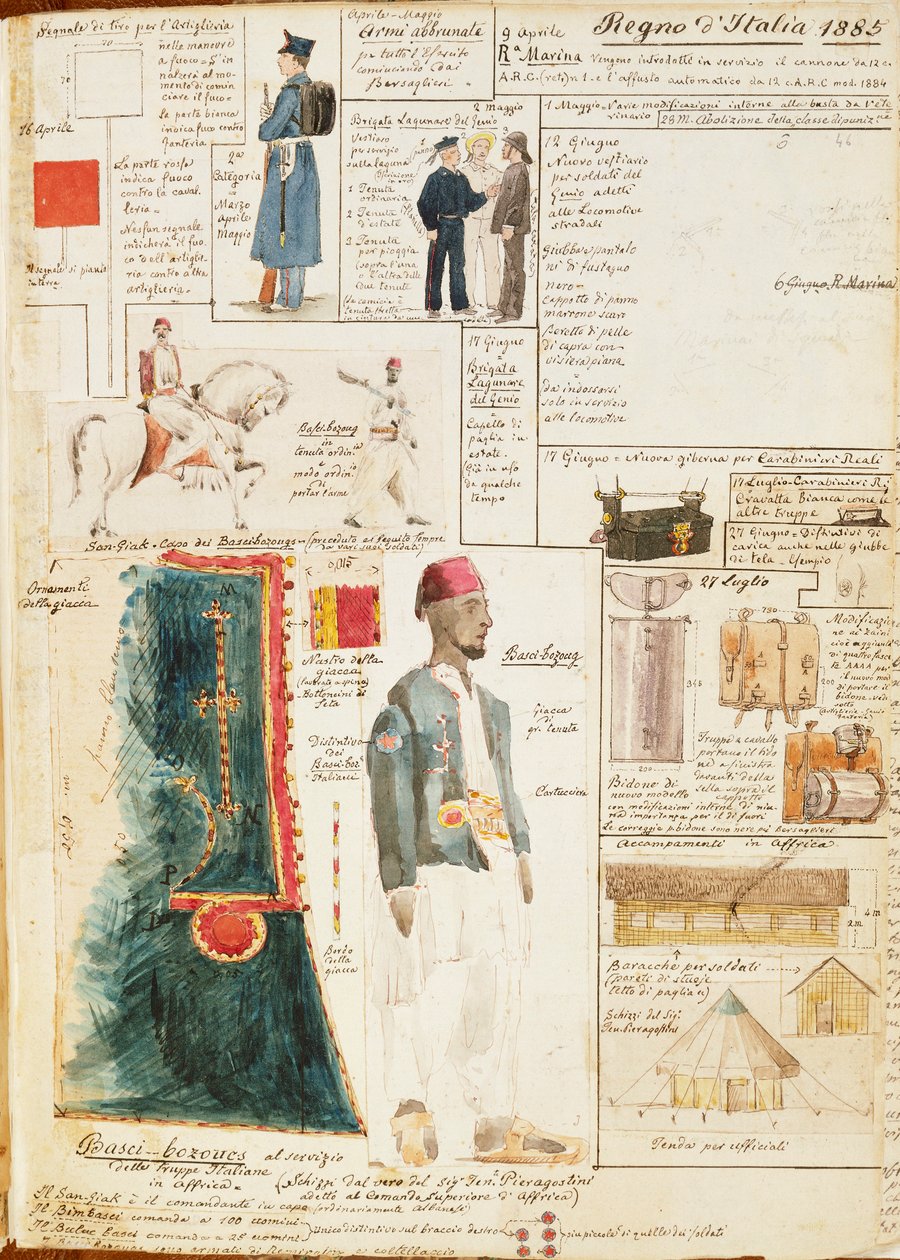 Regno d'Italia 1885
Segnale di tiro per l'Artiglieria
70
70
nelle manovre
a fuoco = S'in
nalzerà al mo-
mento di comin
ciare il fuoco =
la parte bianca
indica fuoco contro
fanteria
16 Aprile
La parte rossa
indica fuoco
contro la caval-
leria =
Nessun segnale
indicherà il fuo-
co dell'artiglie-
ria contro altra
artiglieria =
Il segnale si pianta
in terra
2ª
Categoria
=
Marzo
Aprile
Maggio
Aprile - Maggio
Armi abbrunate
per tutto l'Esercito
cominciando dai
Bersaglieri =
9 Aprile
Rª Marina vengono introdotti in servizio il cannone da 12 c.
A.R.C. (ret) n. 1. e l'affusto automatico da 12 c. A.R.C mod. 1884
2 maggio
Brigata Lagunare del Genio
Vestiario
per servizio
sulla laguna
1 Tenuta
ordinaria
2 Tenuta
d'estate
3 Tenuta
per pioggia
(sopra l'una
o l'altra delle
due tenute
(la camicia è
tenuta stretta
2
3
1 Maggio = Varie modificazioni interne alla busta da vete
rinario
28 M. Abolizione della classe di punizne
12 Giugno
Nuovo vestiario
per soldati del
Genio adetti
alle Locomotive
stradali
Giubba e pantalo
ni di fustagno
nero =
cappotto di panno
marrone scuro
Beretto di pelle
di capra con
visiera piana
=
da indossarsi
solo in servizio
alle locomotive
6 Giugno R. Marina
17 Giugno
=
Brigata
Lagunare
del Genio
=
Capello di
paglia in
estate =
Già in uso
da qualche
tempo
17 Giugno = Nuova giberna per Carabinieri Reali
17 Luglio - Carabinieri Ri
Cravatta Bianca come le
altre truppe
27 Giugno = Distintivi di
carica anche nelle giubbe
di tela - Esempio
Basci-bozoug
in
tenuta ordin.ia
e
modo ordin.io
di
portar l'arme
San-Giak = Capo dei Basci-bozougs = (preceduto e seguito sempre
da vari suoi soldati)
Ornamenti
della giacca
panno bleu scuro
M
N
P
0,015
Nastro della
giacca
(lavorato a spina)
- Bottoncini di
seta
Distintivo
dei
Basci-boz.
Italiani
Bordo
della
giacca
Basci-bozoug
Giacca
di
gr. tenuta
Cartucciera
27 Luglio
345
200
Bidone di
nuovo modello
con modificazioni interne di niu-
na importanza per il di fuori
Le correggie p. bidone sono nere pei Bersaglieri
Truppe a cavallo
portano il bido
ne a sinistra
davanti della
sella sopra il
cappotto
Modificazio
ne ai zaini
cioè aggiunta
di quattro fasce
AAAA per
il nuovo mo
di portare il
bidone = vedi
sotto
Accampamenti in Affrica
2 m.
4 m
Baracche per soldati
(pareti di stuoje
tetto di paglia)
Schizzi del Sigr
Ten. Pieragostini
Tenda per ufficiali
Basci-bozoucs al servizio
delle Truppe Italiane
in Affrica =
(Schizzi dal vero del Sigr Ten. Pieragostini
adetto al Comando Superiore d'Affrica)
Il San-Giak è il comandante in capo (ordinariamente Albanese)
Il Bimbasci comanda a 100 uomini
Il Buluc basci comanda a 25 uomini
unico distintivo sul braccio destro
più piccole di quelle dei soldati
sono armati di Remington e coltellaccio